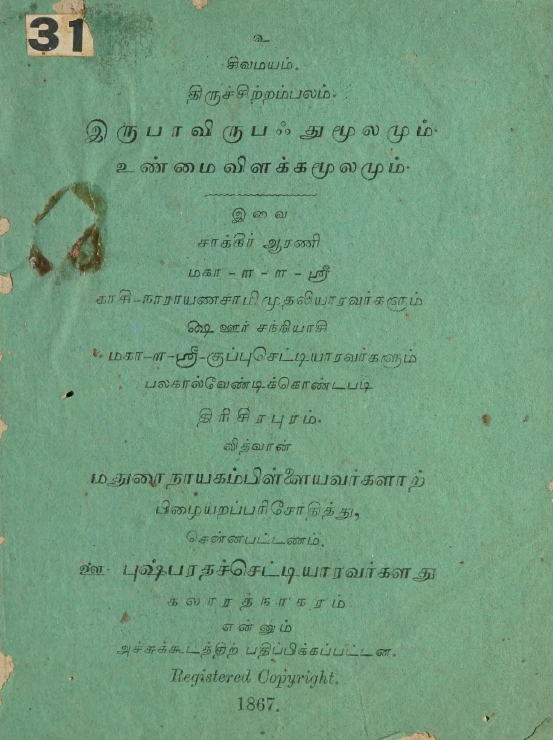 31
உ
சிவமயம்.
திருச்சிற்றம்பலம்.
இருபாவிருபஃதுமூலமும்.
உண்மைவிளக்கமூலமும்.
இவை
சாக்கிர் ஆரணி
மகா-ள-ள-ஸ்ரீ
காசி-நாராயணசாமிமுதலியாரவர்களும்
ஷெ ஊர் சந்நியாசி
மகா-ள-ஸ்ரீ-குப்புசெட்டியாரவர்களும்
பலகால்வேண்டிக்கொண்டபடி
திரிசிரபுரம்.
வித்வான்
மதுரைநாயகம்பிள்ளையவர்களாற்
பிழையறப்பரிசோதித்து,
சென்னபட்டணம்.
புஷ்பரதச்செட்டியாரவர்களது
கலாரத்நாகரம்
என்னும்
அச்சுக்கூடத்திற் பதிப்பிக்கப்பட்டன.
Registered Copyright.
1867.